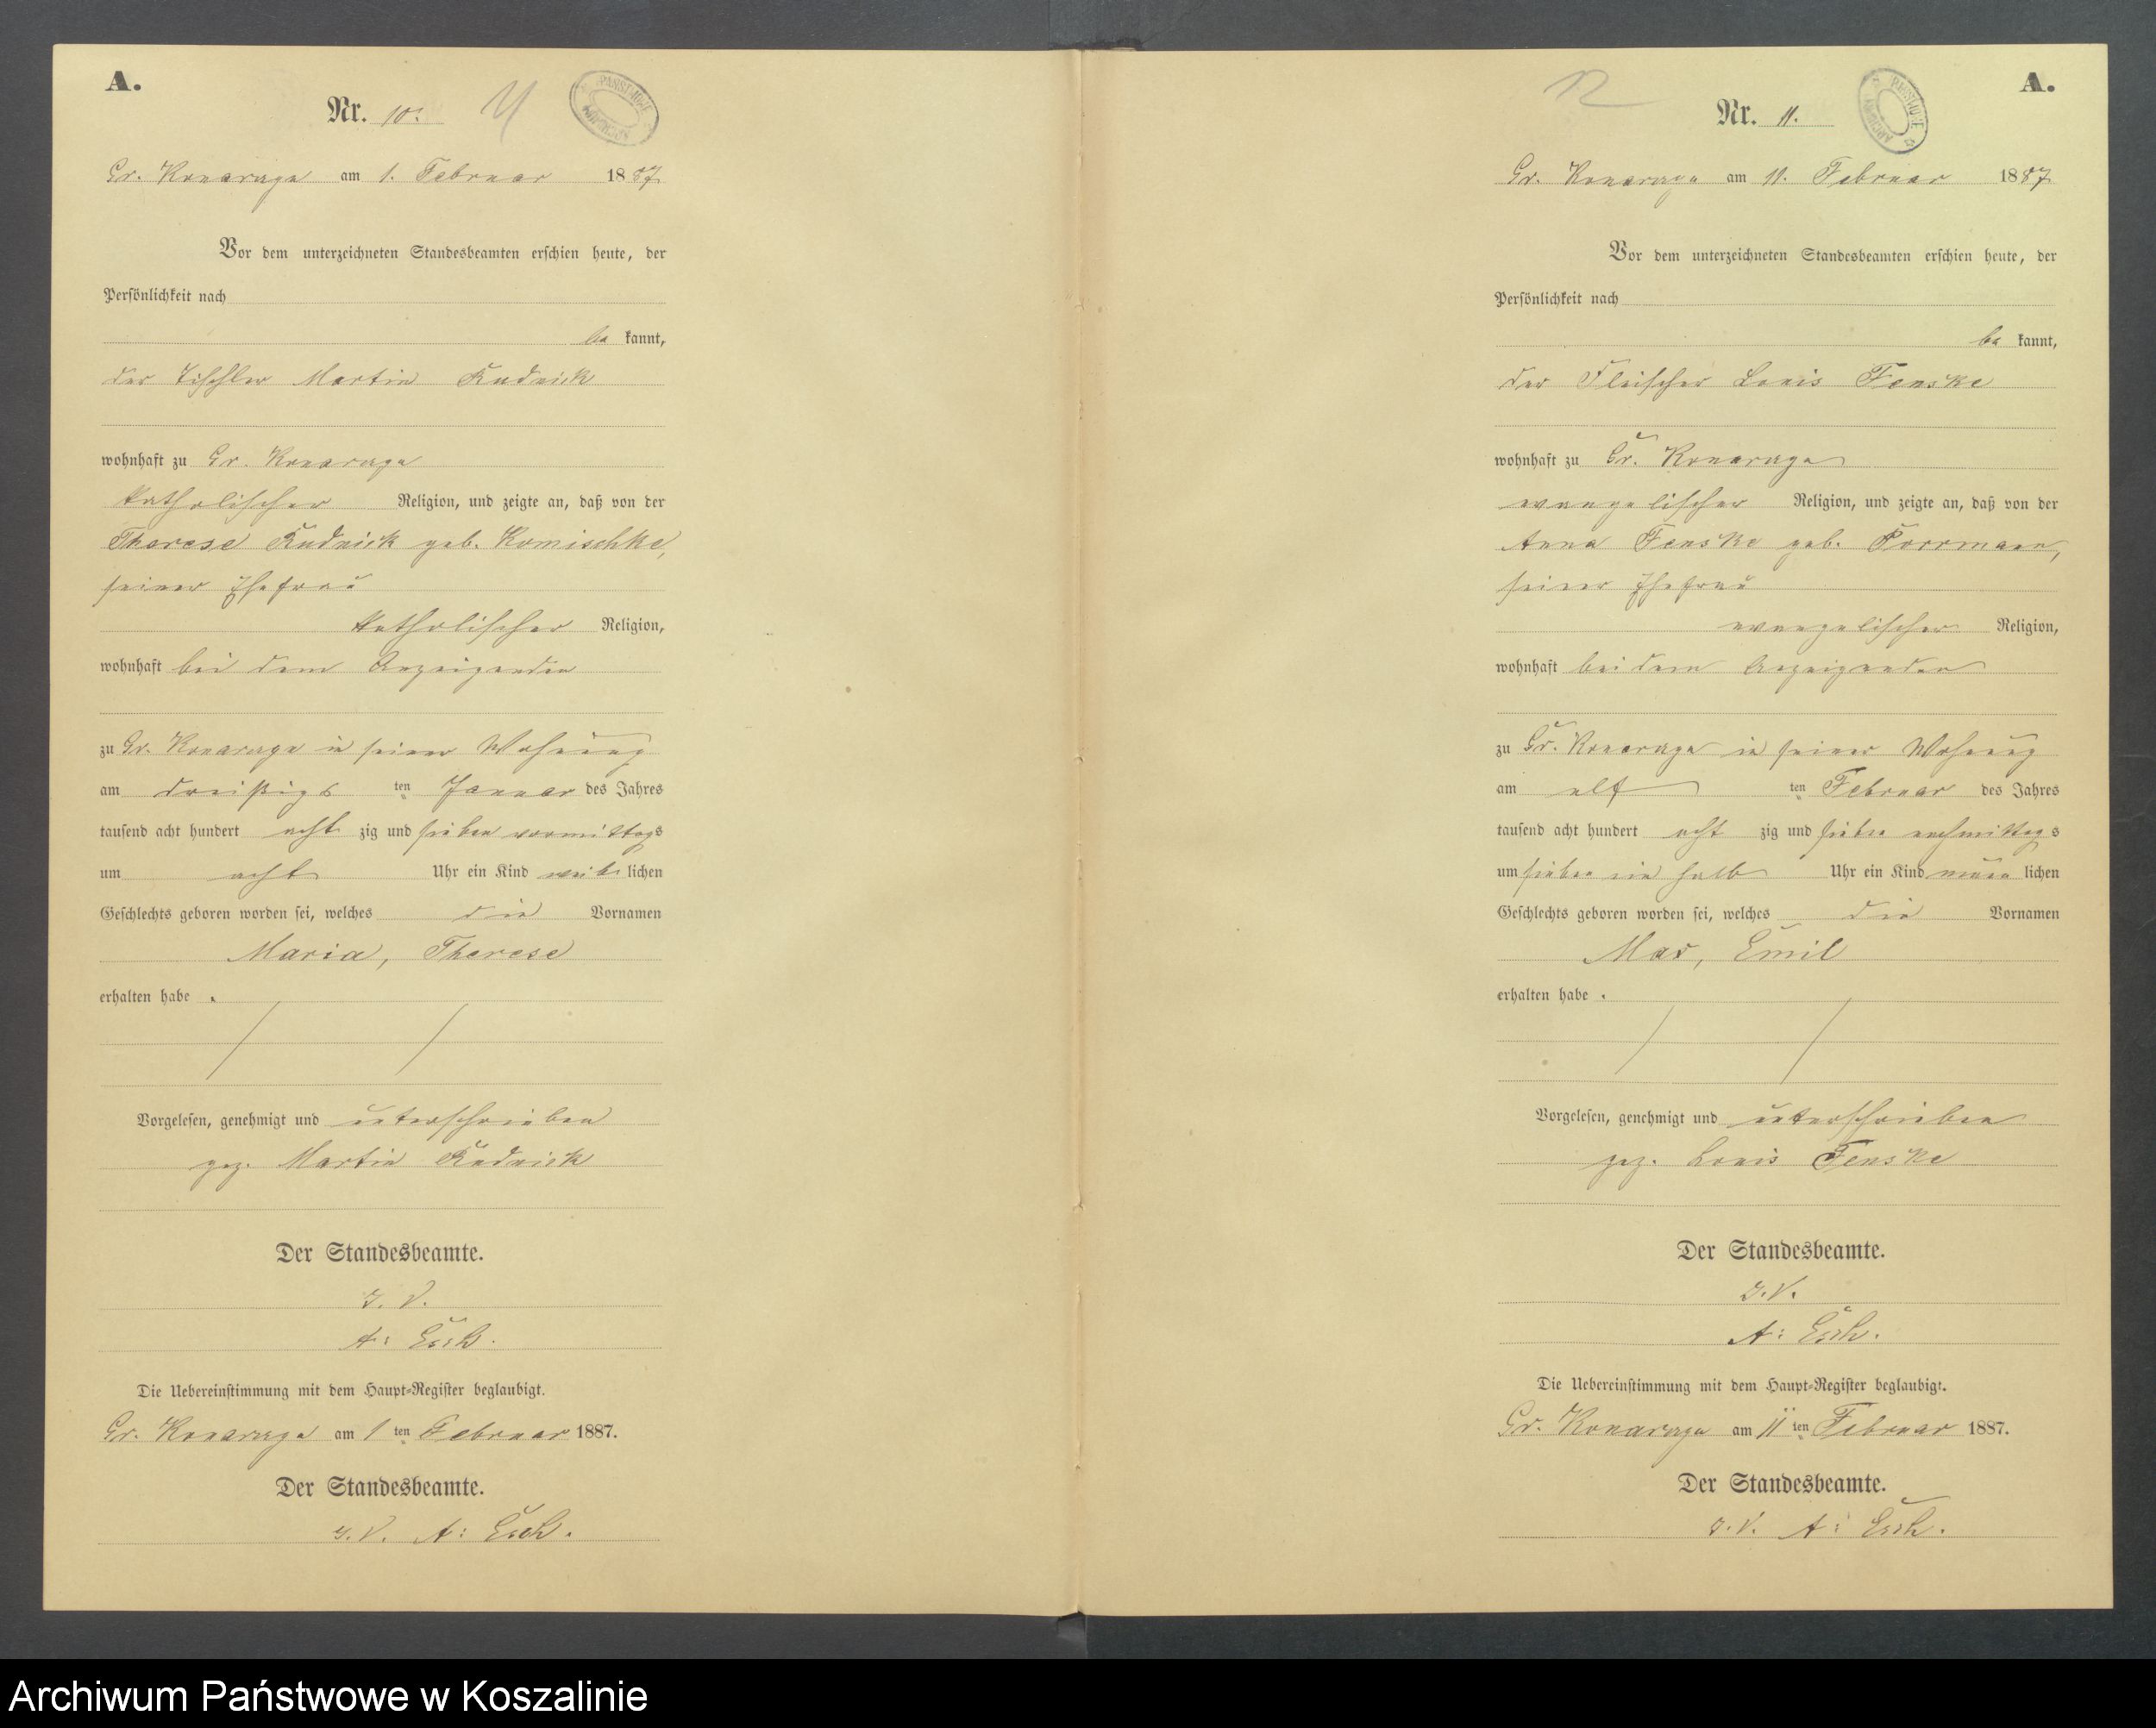 A.
Nr. 10.
Gr. Konarczyn am 1. Februar 1887
Vor dem unterzeichneten Standesbeamten erschien heute, der
Persönlichkeit nach
be kannt,
der Tischler Martin Rudnick
wohnhaft zu Gr.
katholischer Religion, und zeigte an, daß von der
Therese Rudnick geb. Komischke,
seiner Ehefrau
katholischer Religion,
wohnhaft bei dem Anzeigenden
zu Gr. in seiner Wohnung
am dreißigs ten Januar des Jahres
tausend acht hundert acht zig und sieben vormittags
um acht Uhr ein Kind weib lichen
Geschlechts geboren worden sei, welches die Vornamen
Maria, Therese
erhalten habe.
Vorgelesen, genehmigt und unterschrieben
gez. Martin Rudnick
Der Standesbeamte.
J. V.
A:
Die Uebereinstimmung mit dem Haupt-Register beglaubigt.
Gr. am 1 ten Februar 1887.
Der Standesbeamte.
J. V. A:
12
A.
Nr. 11.
Gr. am 11. Februar 1887
Vor dem unterzeichneten Standesbeamten erschien heute, der
Persönlichkeit nach
be kannt,
der Fleischer Louis Fenske
wohnhaft zu Gr.
evangelischer Religion, und zeigte an, daß von der
Anna Fenske geb. Porrmann,
seiner Ehefrau
evangelischer Religion,
wohnhaft bei dem Anzeigenden
zu Gr. in seiner Wohnung
am elf ten Februar des Jahres
tausend acht hundert acht zig und sieben nachmittags
um sieben ein halb Uhr ein Kind männ lichen
Geschlechts geboren worden sei, welches die Vornamen
Max, Emil
erhalten habe.
Vorgelesen, genehmigt und unterschrieben
gez. Louis Fenske
Der Standesbeamte.
J. V.
A:
Die Uebereinstimmung mit dem Haupt-Register beglaubigt.
Gr. am 11 ten Februar 1887.
Der Standesbeamte.
J. V. A:
Archiwum Państwowe w Koszalinie